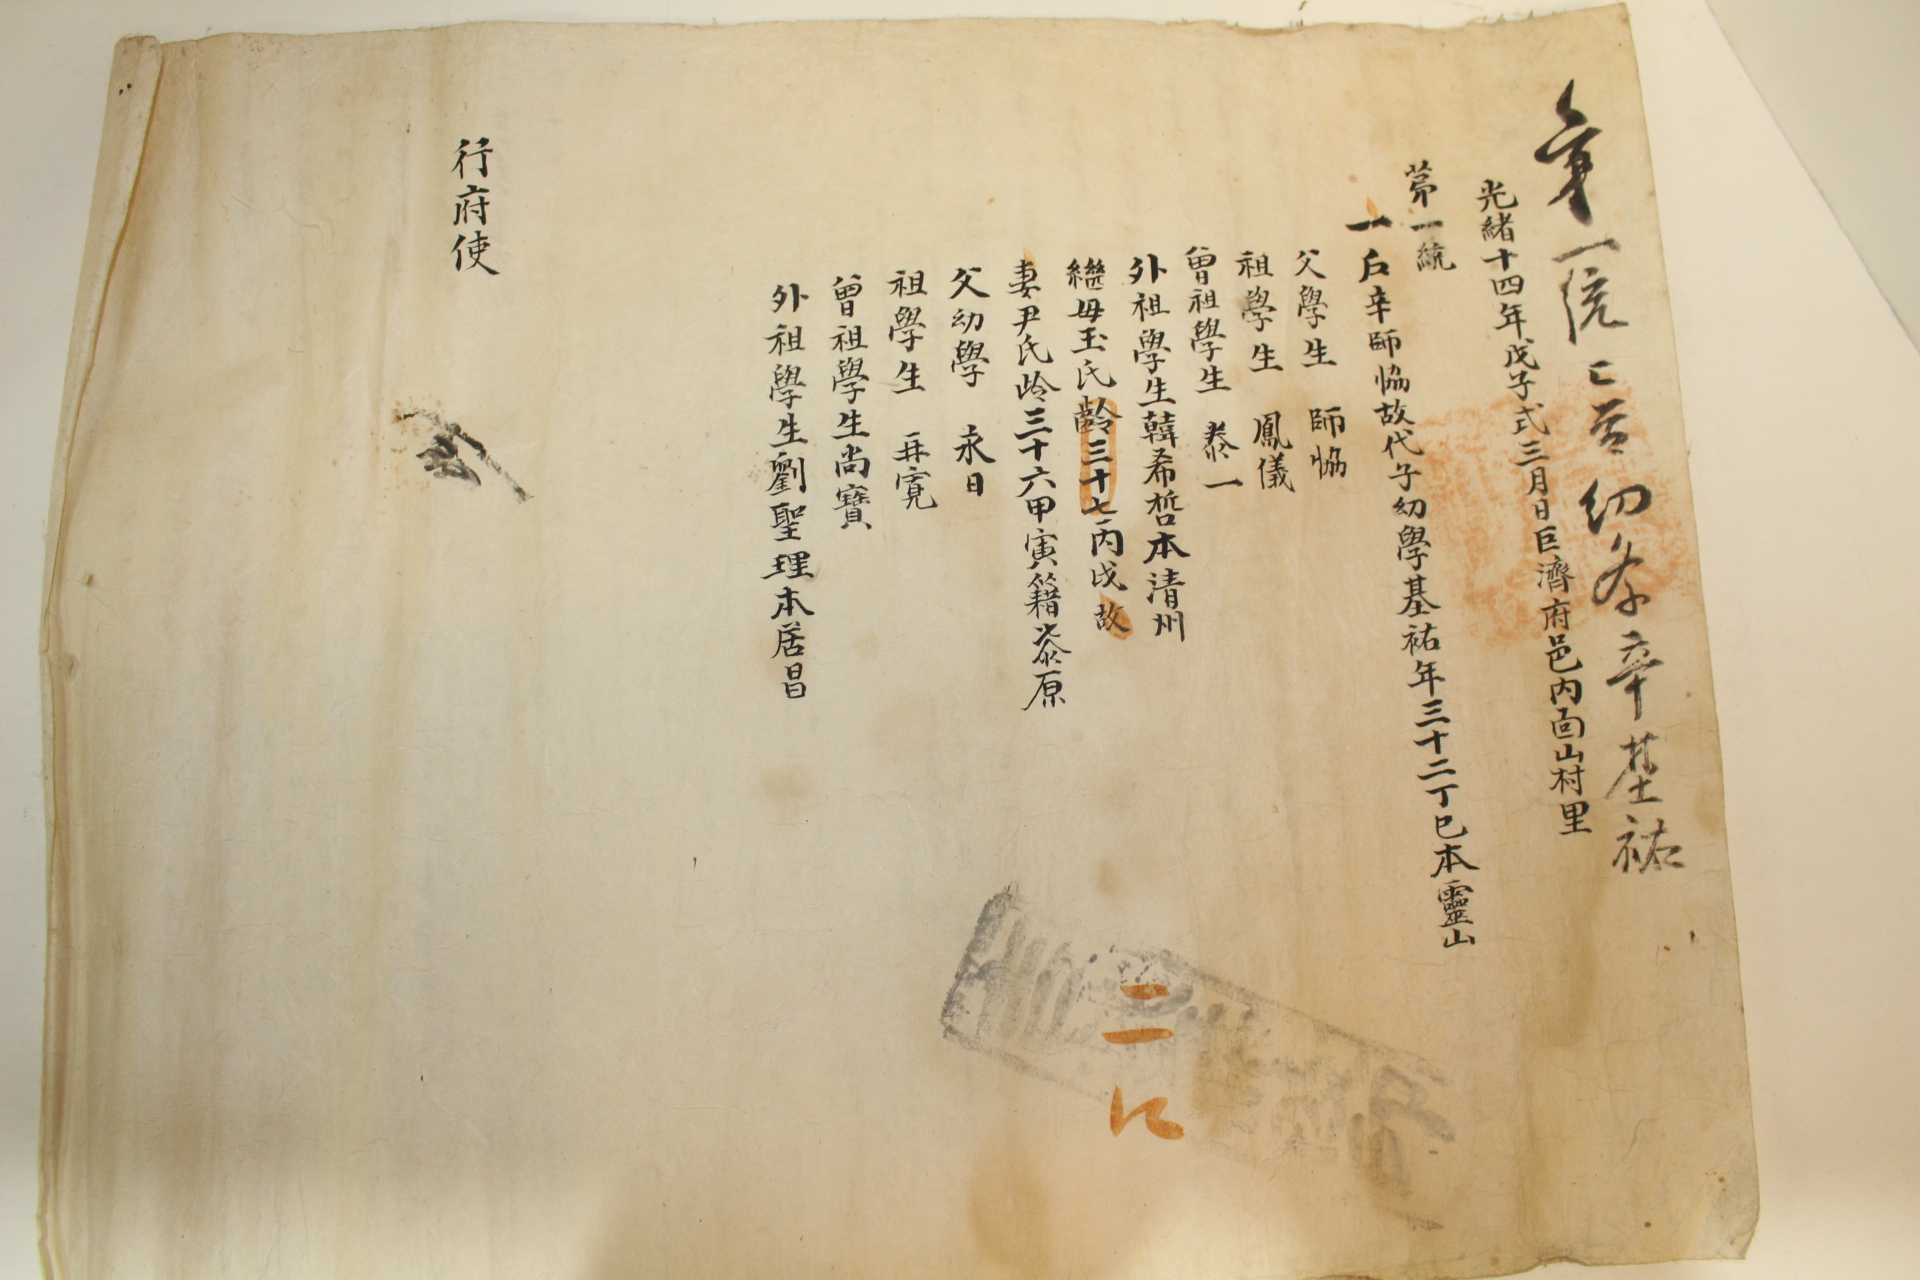 第一統二戶幼學辛基祐
光緖十四年戊子式三月日巨濟府邑內面山村里
第一統
一戶辛師協故代子幼學基祐年三十二丁巳本靈山
父學生 師協
祖學生 鳳儀
曾祖學生 泰一
外祖學生韓希哲本清州
繼母玉氏齡三十七丙戌故
妻尹氏齡三十六甲寅籍柒原
父幼學 永日
祖學生 再寬
曾祖學生尚寶
外祖學生劉聖理本居昌
行府使
二
一
口